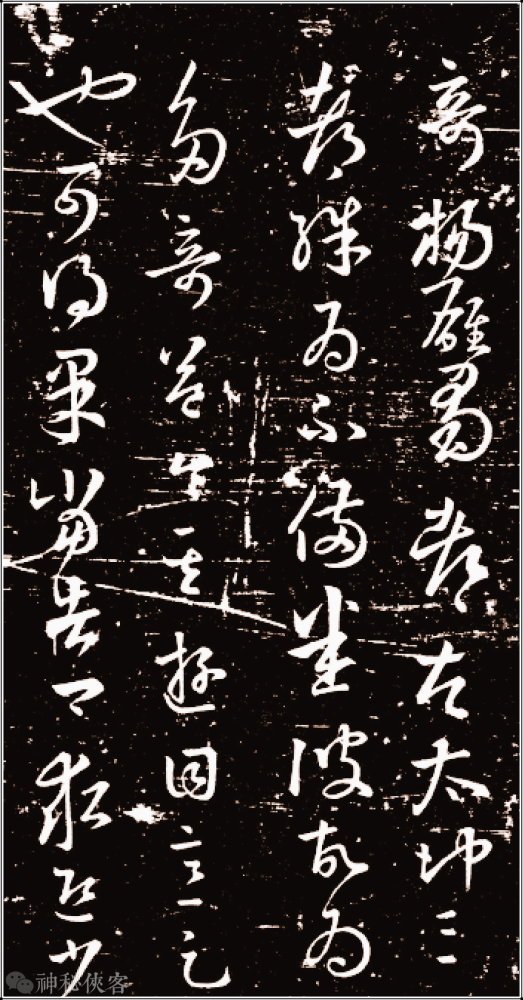 奇揚雄蜀都左太沖三
都殊為不備悉彼故為
多奇益令其遊目意足
也可得果當告卿求迎少
神秘俠客